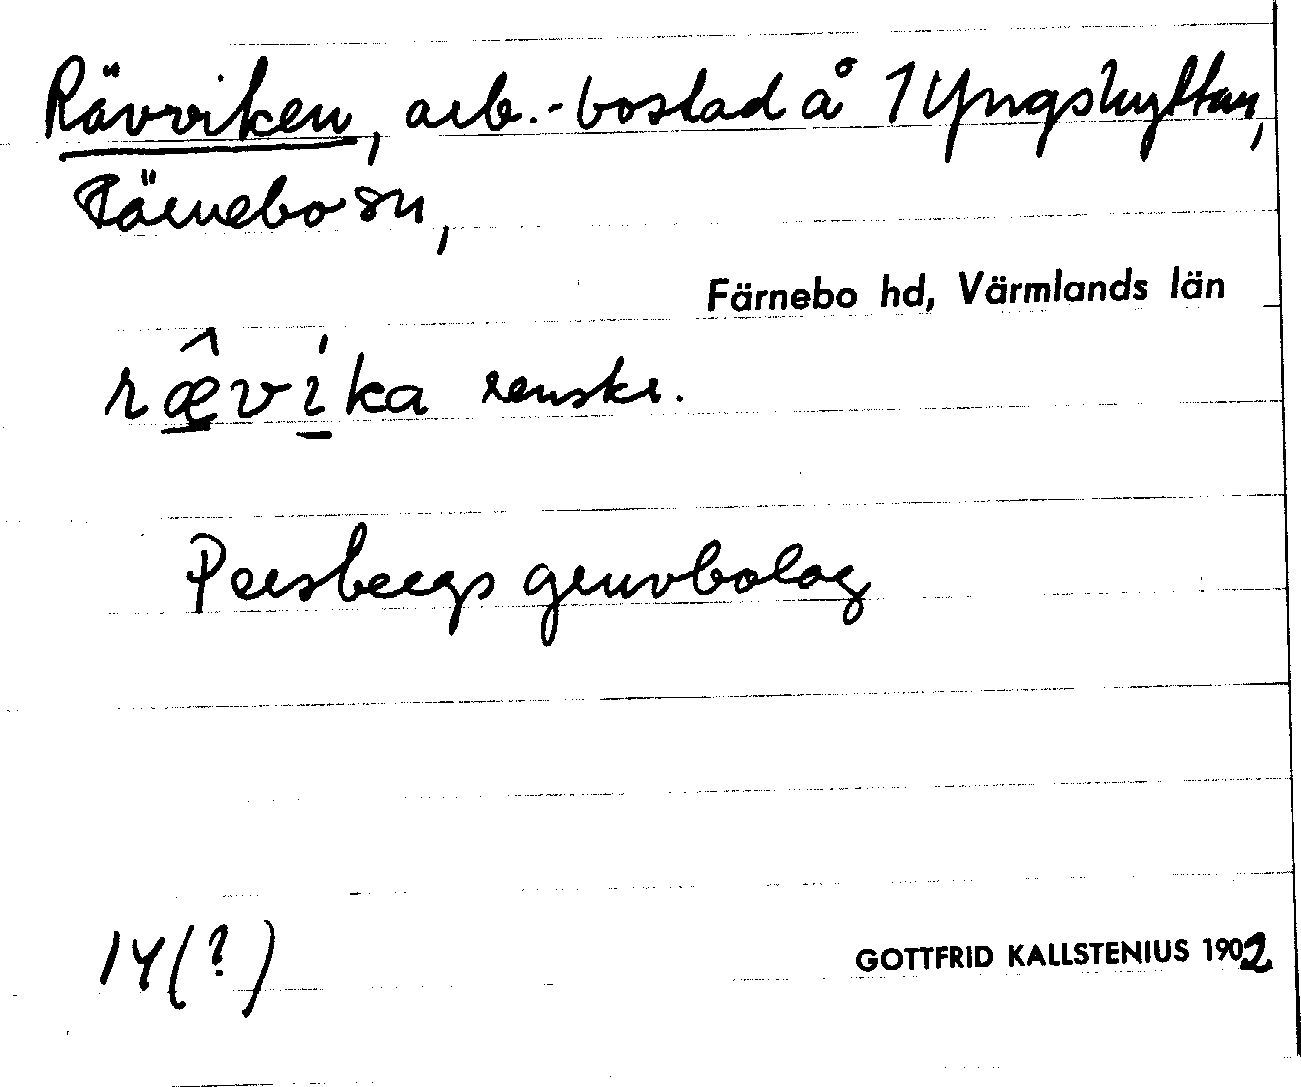 Rävviken, arb.-bostad å 1 Yngshyttan,
Färnebo sn,
Färnebo hd, Värmlands län
ræ̂vi̍ka renskr.
Persbergs gruvbolag
14(?)
GOTTFRID KALLSTENIUS 1902